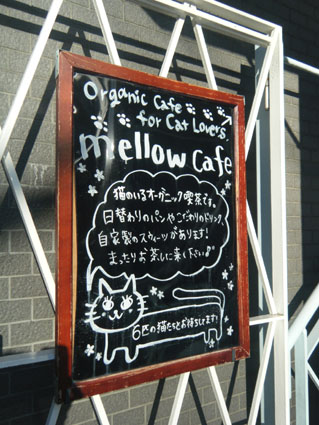 Organic Cafe
for Cat Lovers
mellow cafe
猫のいるオーガニック喫茶です。
日替わりのパンやこだわりのドリンク、
自家製のスウィーツがあります!
まったりお茶しに来て下さい
6匹の猫たちとお待ちしてます!